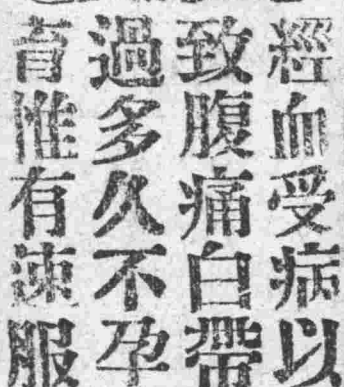 經血受病以
致腹痛白帶
過多久不孕
育惟有速服